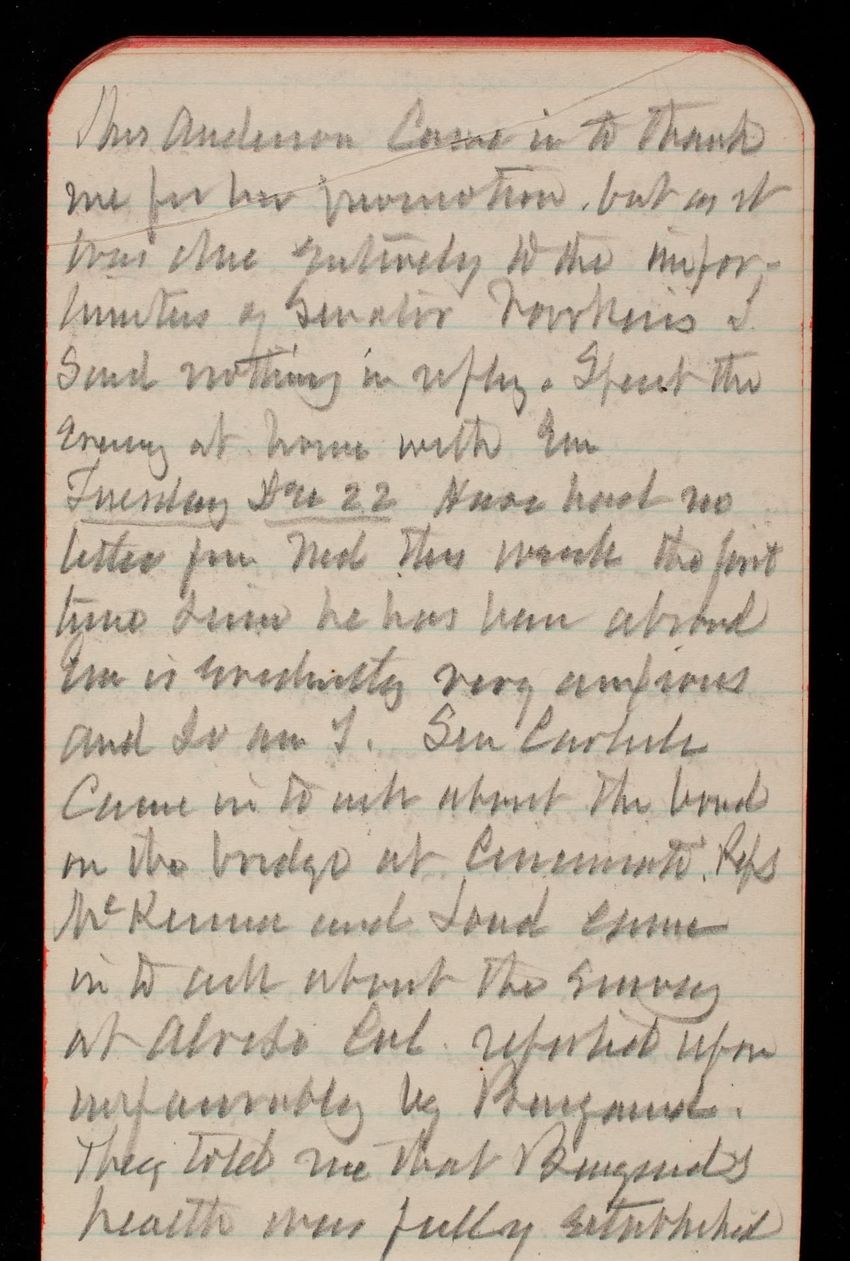 Miss Anderson Came in to thank
me for her promotion. but as it
was due entirely to the impor-
tunities of Senator Hawkins I
Said nothing in reply. Spent the
Evening at home with Em
Tuesday Dec 22 Have had no
letter from Ned this week the first
time Since he has been abroad
Em is evidently very anxious
and So am I. Sen Carlisle
Came in to ask about the bond
on the bridge at Cincinnati. Reps
McKenna and Loud came
in to ask about the Survey
at Alviso Cal. reported upon
unfavorably by Benyaurd.
They told me that Benyaurd's
health was fully established